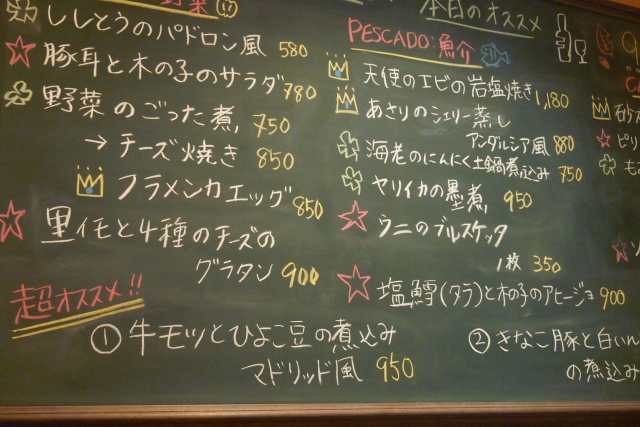 野菜
ししとうのパドロン風 580
豚耳と木の子のサラダ 780
野菜のごった煮 750
→ チーズ焼き 850
フラメンカエッグ 850
里イモと4種のチーズの
グラタン 900
超オススメ!!
① 牛モツとひよこ豆の煮込み
マドリッド風 950
本日のオススメ
PESCADO:魚介
天使のエビの岩塩焼き 1,180
あさりのシェリー蒸し
アンダルシア風 880
海老のにんにく土鍋煮込み 750
ヤリイカの墨煮 950
ウニのブルスケッタ
1枚 350
塩鱈(タラ)と木の子のアヒージョ 900
② きなこ豚と白いん
の煮込み